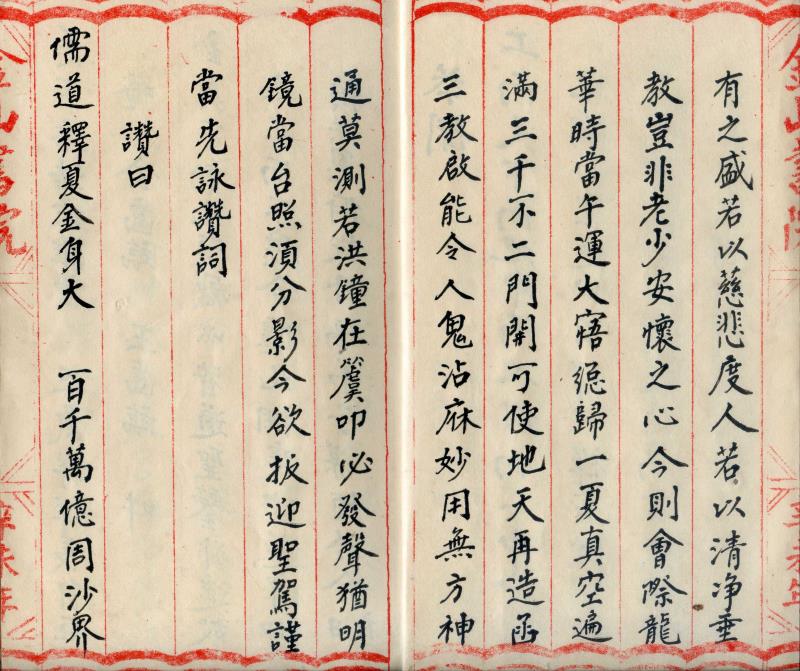 有之盛若以慈悲度人若以清净垂
教豈非老少安懷之心今則會際龍
華時當午運大寤總歸一夏真空遍
滿三千不二門開可使地天再造函
三教啟能令人鬼沾庥妙用無方神
通莫測若洪鐘在簴叩必發聲猶明
鏡當台照須分影今欲扳迎聖駕謹
當先詠讚詞
讚曰
儒道釋夏金身大 百千萬億周沙界
辛未年